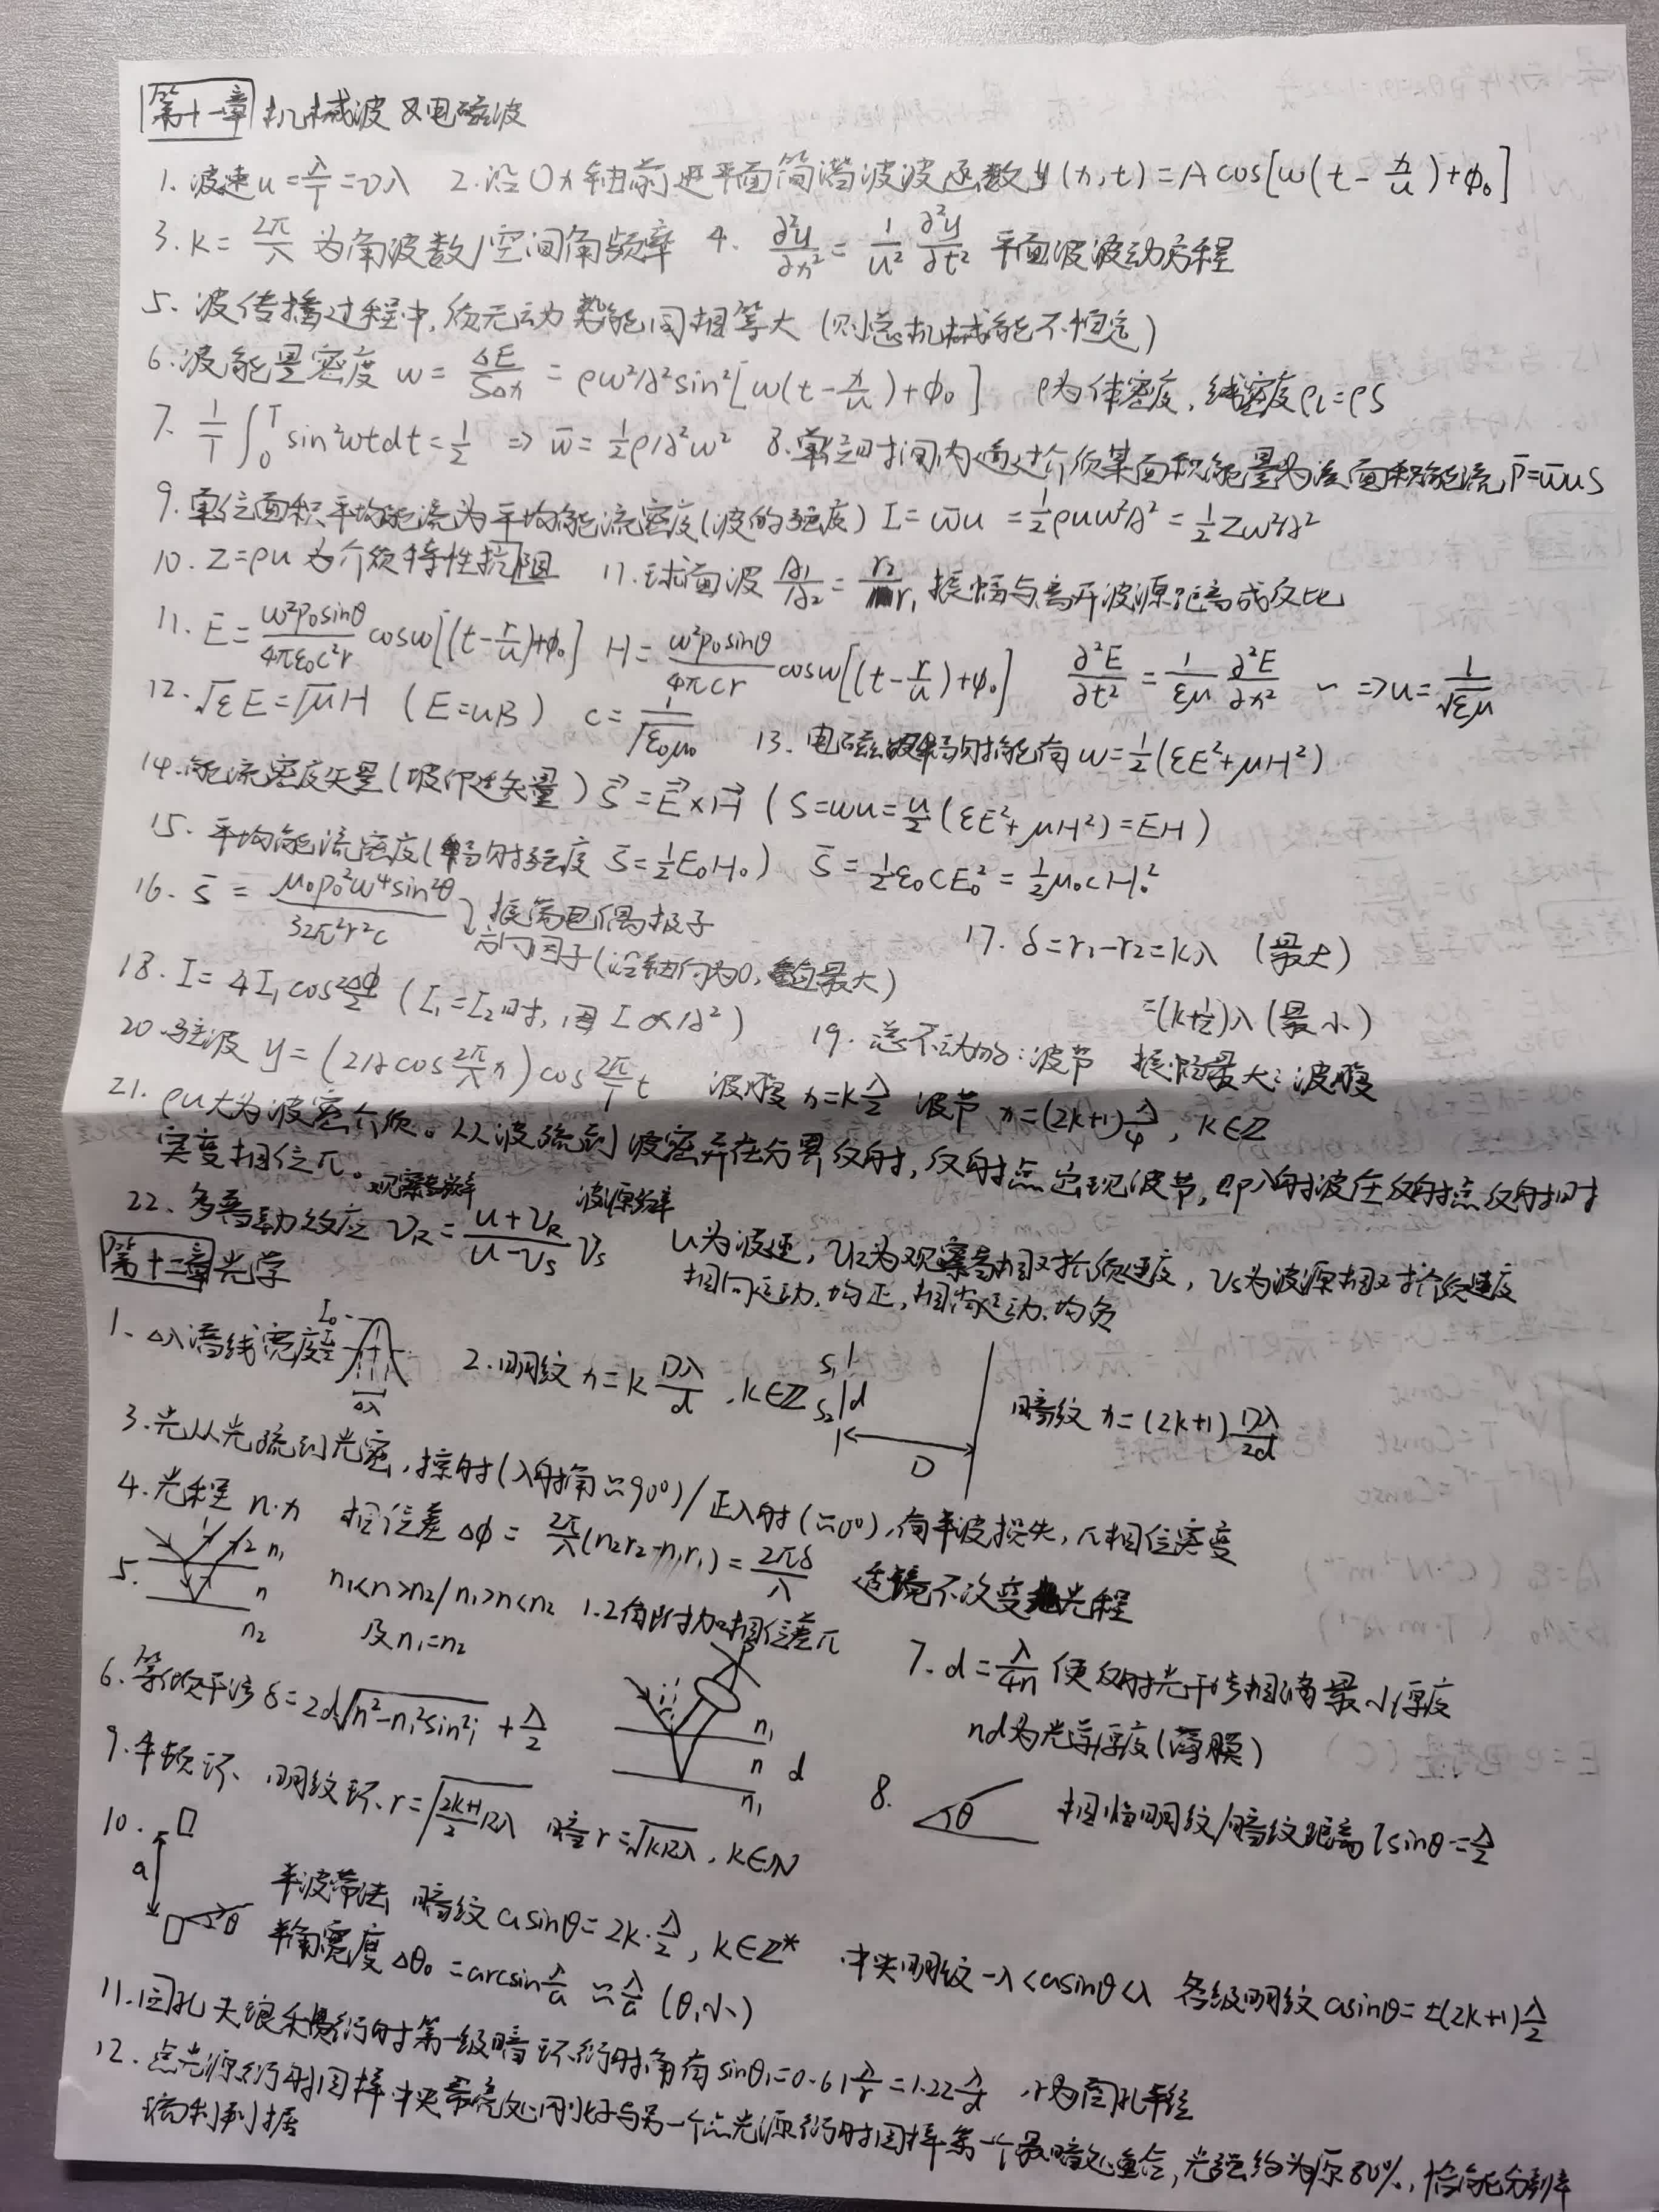 第十一章 机械波及电磁波
1. 波速 u = λ/T = νλ 2. 沿Ox轴前进平面简谐波波函数 y(x,t) = A cos[ω(t - x/u) + φ₀]
3. k = 2π/λ 为角波数/空间角频率 4. ∂²y/∂x² = 1/u² ∂²y/∂t² 平面波波动方程
5. 波传播过程中,质元动势能同相等大(则总机械能不恒定)
6. 波能量密度 w = ΔE/SΔx = ρω²A²sin²[ω(t - x/u) + φ₀] ρ为体密度,线密度ρₗ=ρS
7. 1/T ∫₀ᵀ sin²ωtdt = 1/2 ⇒ w̄ = 1/2 ρA²ω² 8. 单位时间内通过介质某面积能量为该面积能流 P̄ = w̄uS
9. 单位面积平均能流为平均能流密度(波的强度) I = w̄u = 1/2 ρuω²A² = 1/2 Zω²A²
10. Z = ρu 为介质特性抗阻 11. 球面波 A₁/A₂ = r₂/r₁ 振幅与离开波源距离成反比
11. E = ω²p₀sinθ/4πε₀c²r cosω[(t - r/u) + φ₀] H = ω²p₀sinθ/4πcr cosω[(t - r/u) + φ₀] ∂²E/∂t² = 1/εμ ∂²E/∂x² ~ ⇒ u = 1/√εμ
12. √ε E = √μ H (E = uB) c = 1/√ε₀μ₀ 13. 电磁辐射能有 w = 1/2(εE² + μH²)
14. 能流密度矢量(坡印廷矢量) S⃗ = E⃗ × H⃗ (S = wu = u/2(εE² + μH²) = EH)
15. 平均能流密度(辐射强度 S̄ = 1/2 E₀H₀) S̄ = 1/2 ε₀cE₀² = 1/2 μ₀cH₀²
16. S̄ = μ₀p₀²ω⁴sin²θ/32π²r²c 振荡电偶极子
方向因子(沿轴向为0, 最大) 17. δ = r₁ - r₂ = kλ (最大)
= (k+1/2)λ (最小)
18. I = 4I₁cos²Δφ/2 (I₁ = I₂时, 因 I ∝ A²)
19. 总不动的:波节 振幅最大:波腹
20. 驻波 y = (2A cos 2π/λ x) cos 2π/T t 波腹 x = k λ/2 波节 x = (2k+1)λ/4, k∈Z
21. ρu大为波密介质。从波疏到波密并在分界反射,反射点出现波节,即入射波在反射点反射时
突变相位π。
22. 多普勒效应 ν_R = (u + v_R)/(u - v_S) ν_S 观察者频率 波源频率 u为波速, v_R为观察者相对介质速度, v_S为波源相对介质速度
相向运动,均正,相背运动,均负
第十二章 光学
1. Δλ谱线宽度 I₀ I₀/2 Δλ 2. 明纹 x = k Dλ/d, k∈Z S₁ S₂ d D 暗纹 x = (2k+1) Dλ/2d
3. 光从光疏到光密,掠射(入射角≈90°)/正入射(≈0°),有半波损失,π相位突变
4. 光程 n·x 相位差 Δφ = 2π/λ (n₂r₂ - n₁r₁) = 2πδ/λ 透镜不改变光程
5. 1 2 n₁ n n₂ n₁<n>n₂ / n₁>n<n₂ 1.2有附加相位差π
及n₁=n₂
6. 等倾干涉 δ = 2d√n² - n₁²sin²i + λ/2 i n₁ n d n₁
7. d = λ/4n 使反射光干涉相消最小厚度
nd为光学厚度(薄膜)
8. θ 相临明纹/暗纹距离 l sinθ = λ/2
9. 牛顿环、明纹环 r = √(2k+1)/2 Rλ 暗 r = √kRλ, k∈N
10. a θ 半波带法 暗纹 a sinθ = 2k·λ/2, k∈Z* 中央明纹 -λ < a sinθ < λ 各级明纹 a sinθ = ±(2k+1)λ/2
半角宽度 Δθ₀ = arcsin λ/a ≈ λ/a (θ₁小)
11. 圆孔夫琅禾费衍射第一级暗环衍射角有 sinθ₁ = 0.61 λ/r = 1.22 λ/d , r为圆孔半径
12. 点光源衍射图样中央最亮处刚好与另一个点光源衍射图样第一个最暗处重合,光强约为原80%,恰能分辨
瑞利判据